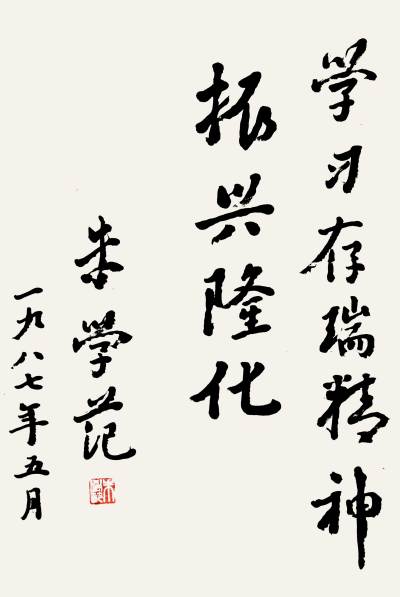 学习存瑞精神
振兴隆化
朱學范
一九八七年五月